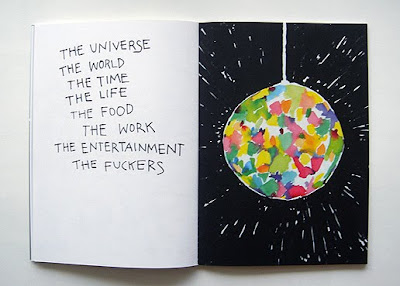 THE UNIVERSE
THE WORLD
THE TIME
THE LIFE
THE FOOD
THE WORK
THE ENTERTAINMENT
THE FUCKERS